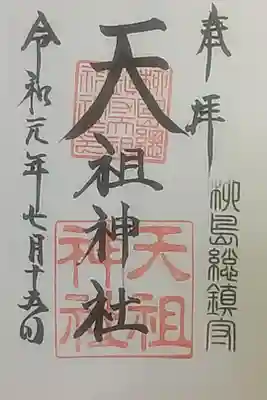 奉拝
柳島総鎮守
天祖神社
天祖神社
令和元年七月十五日